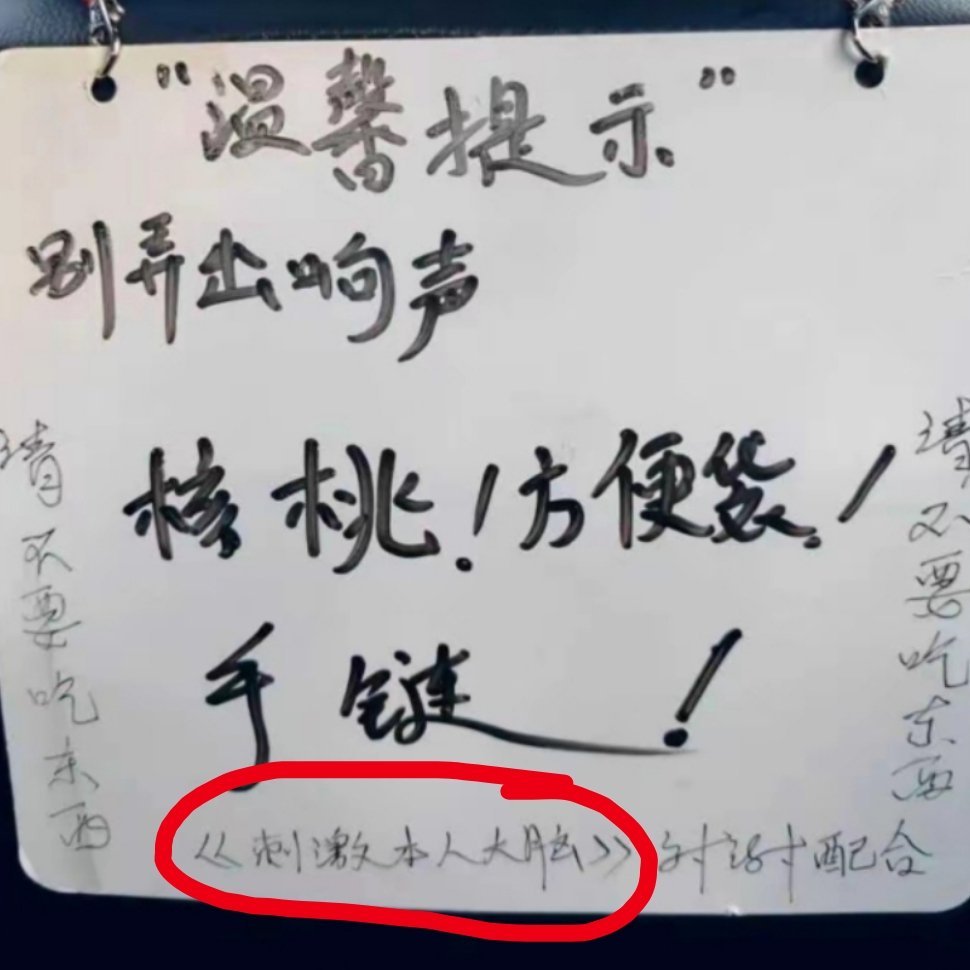 “温馨提示”
别弄出响声
核桃！方便袋！
手链！
《刺激本人大脑》谢谢配合
请不要吃东西
请不要吃东西